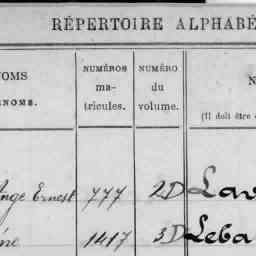 RÉPERTOIRE ALPHABÉ
NOMS
NUMÉROS
ma-
tricules.
NUMÉRO
du
volume.
N
ÉNOMS.
(Il doit être
Ange Ernest 777 2D Lav
ne 1417 3D Leba